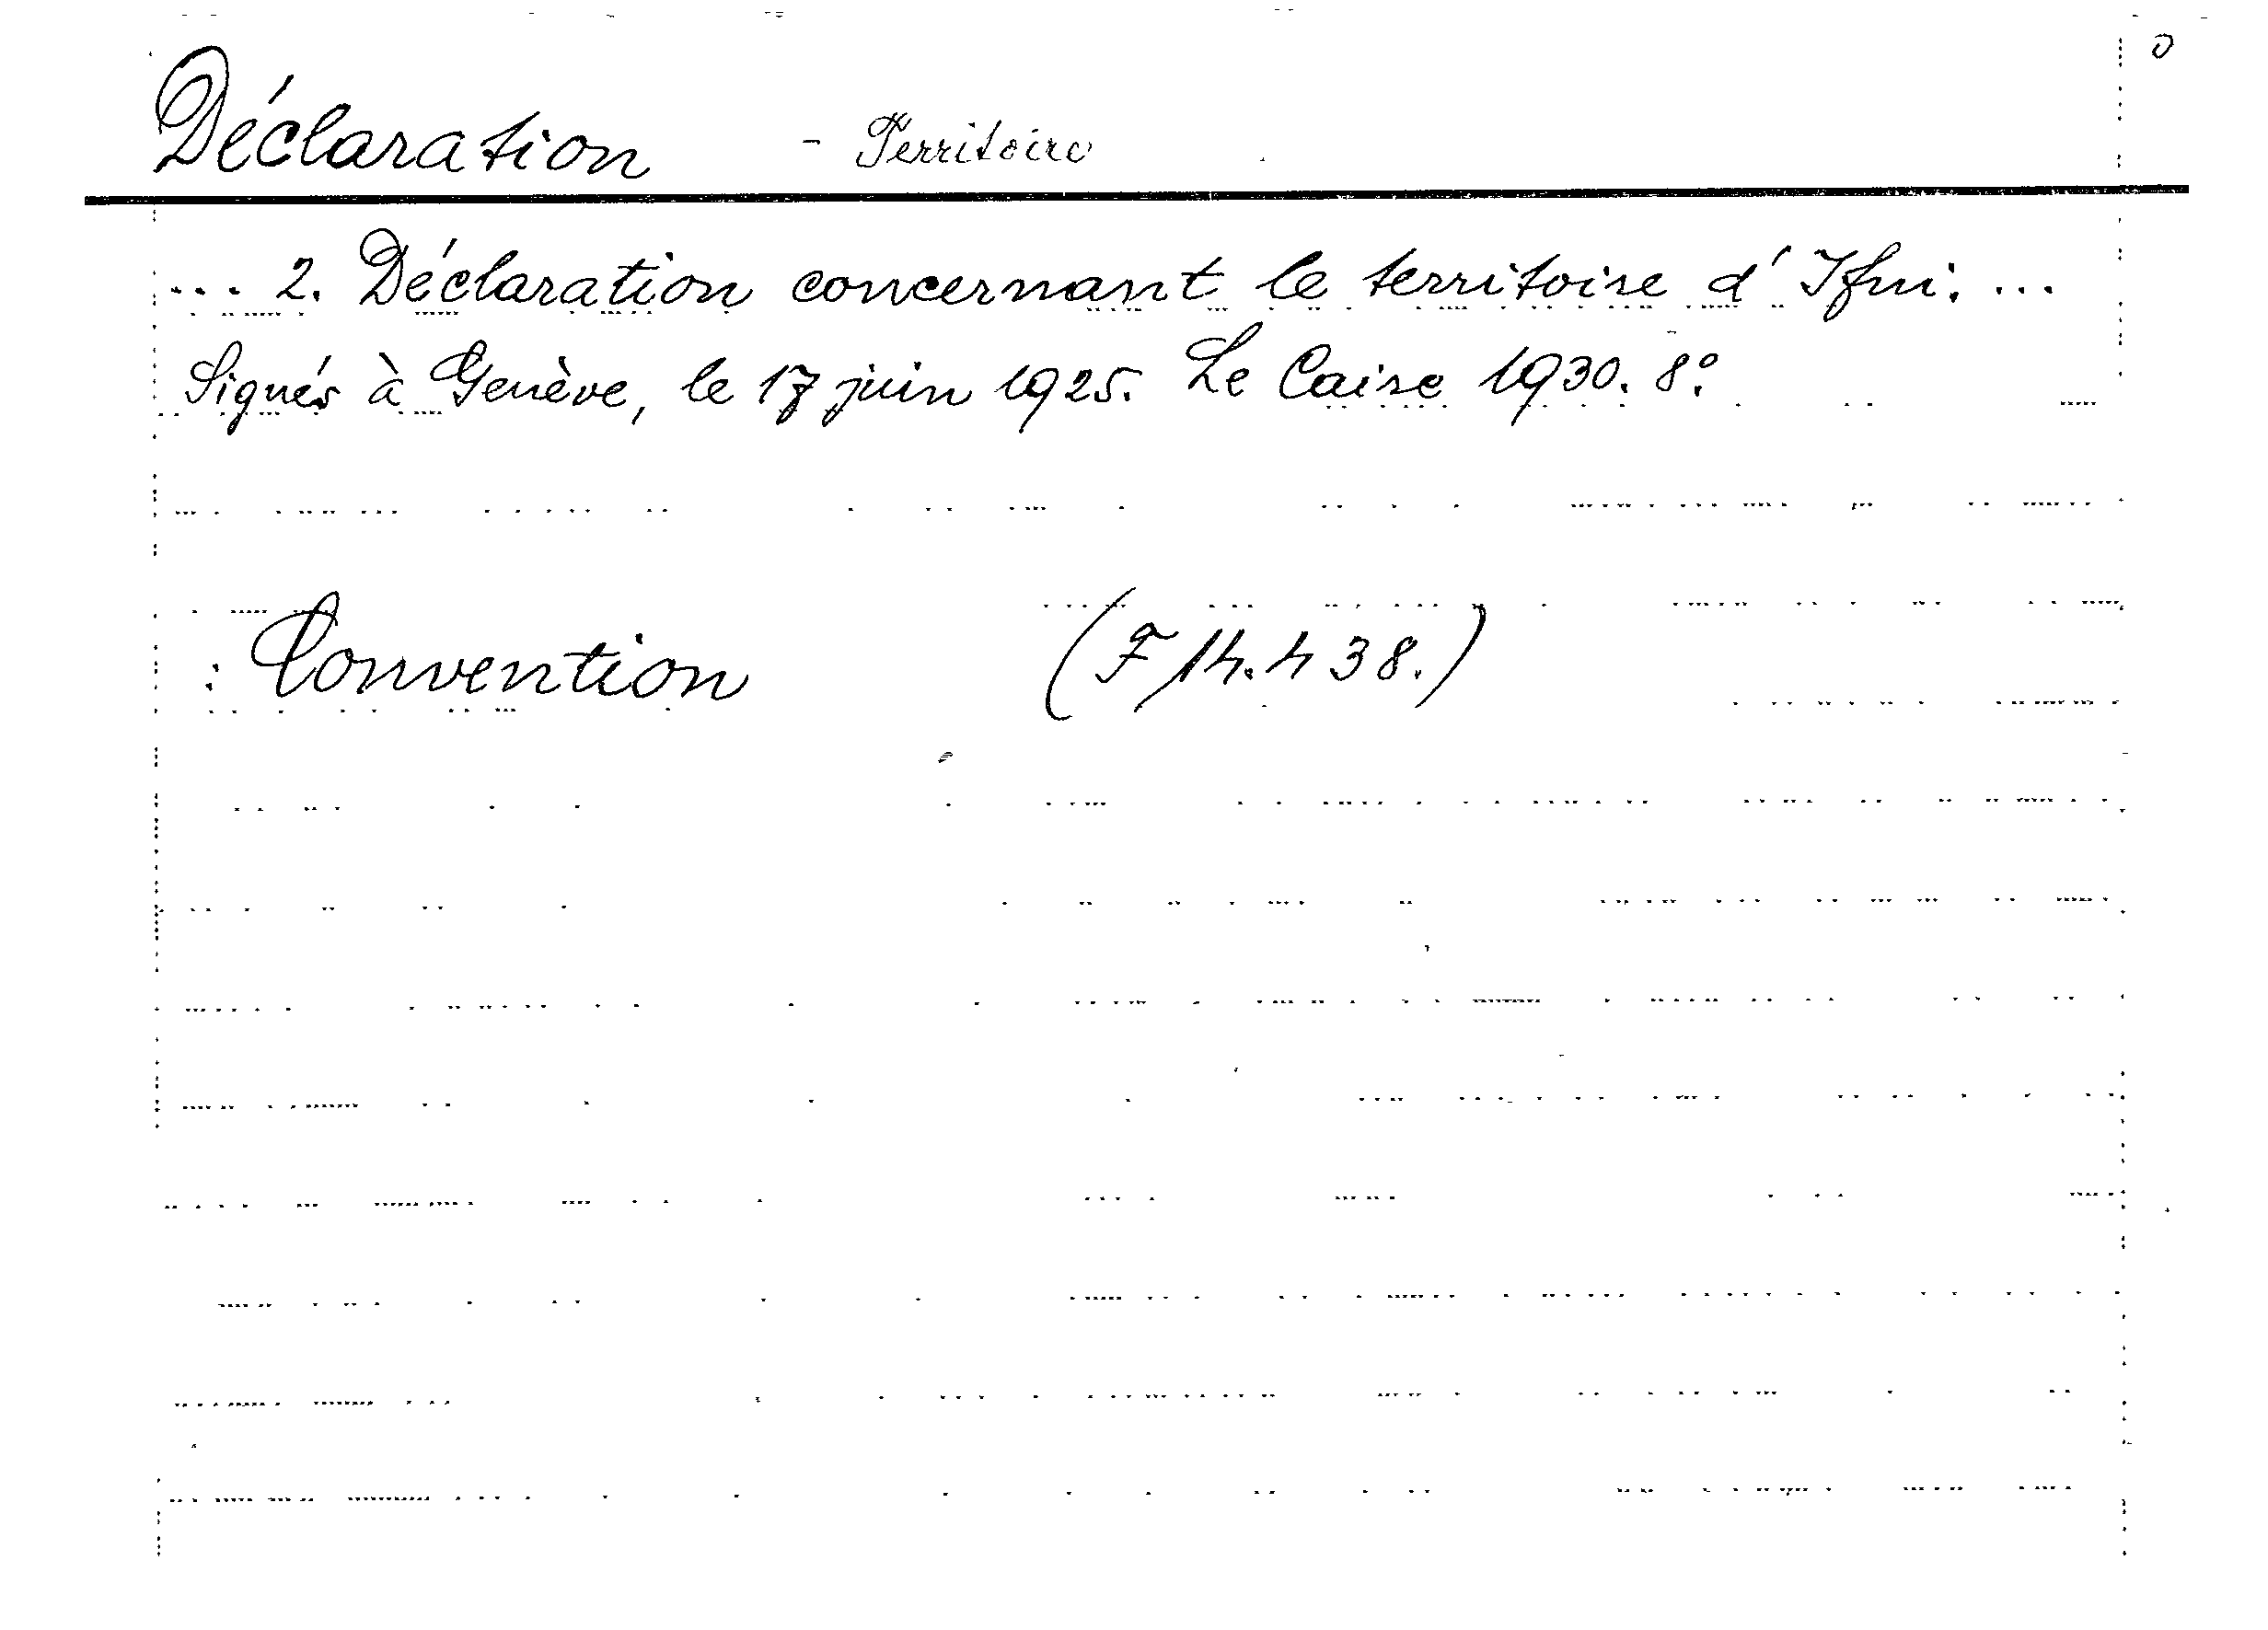 Déclaration - Territoire
... 2. Déclaration concernant le territoire d'Ifni. ...
Signés à Genève, le 17 juin 1925. Le Caire 1930. 8°.
: Convention (F 14.438.)